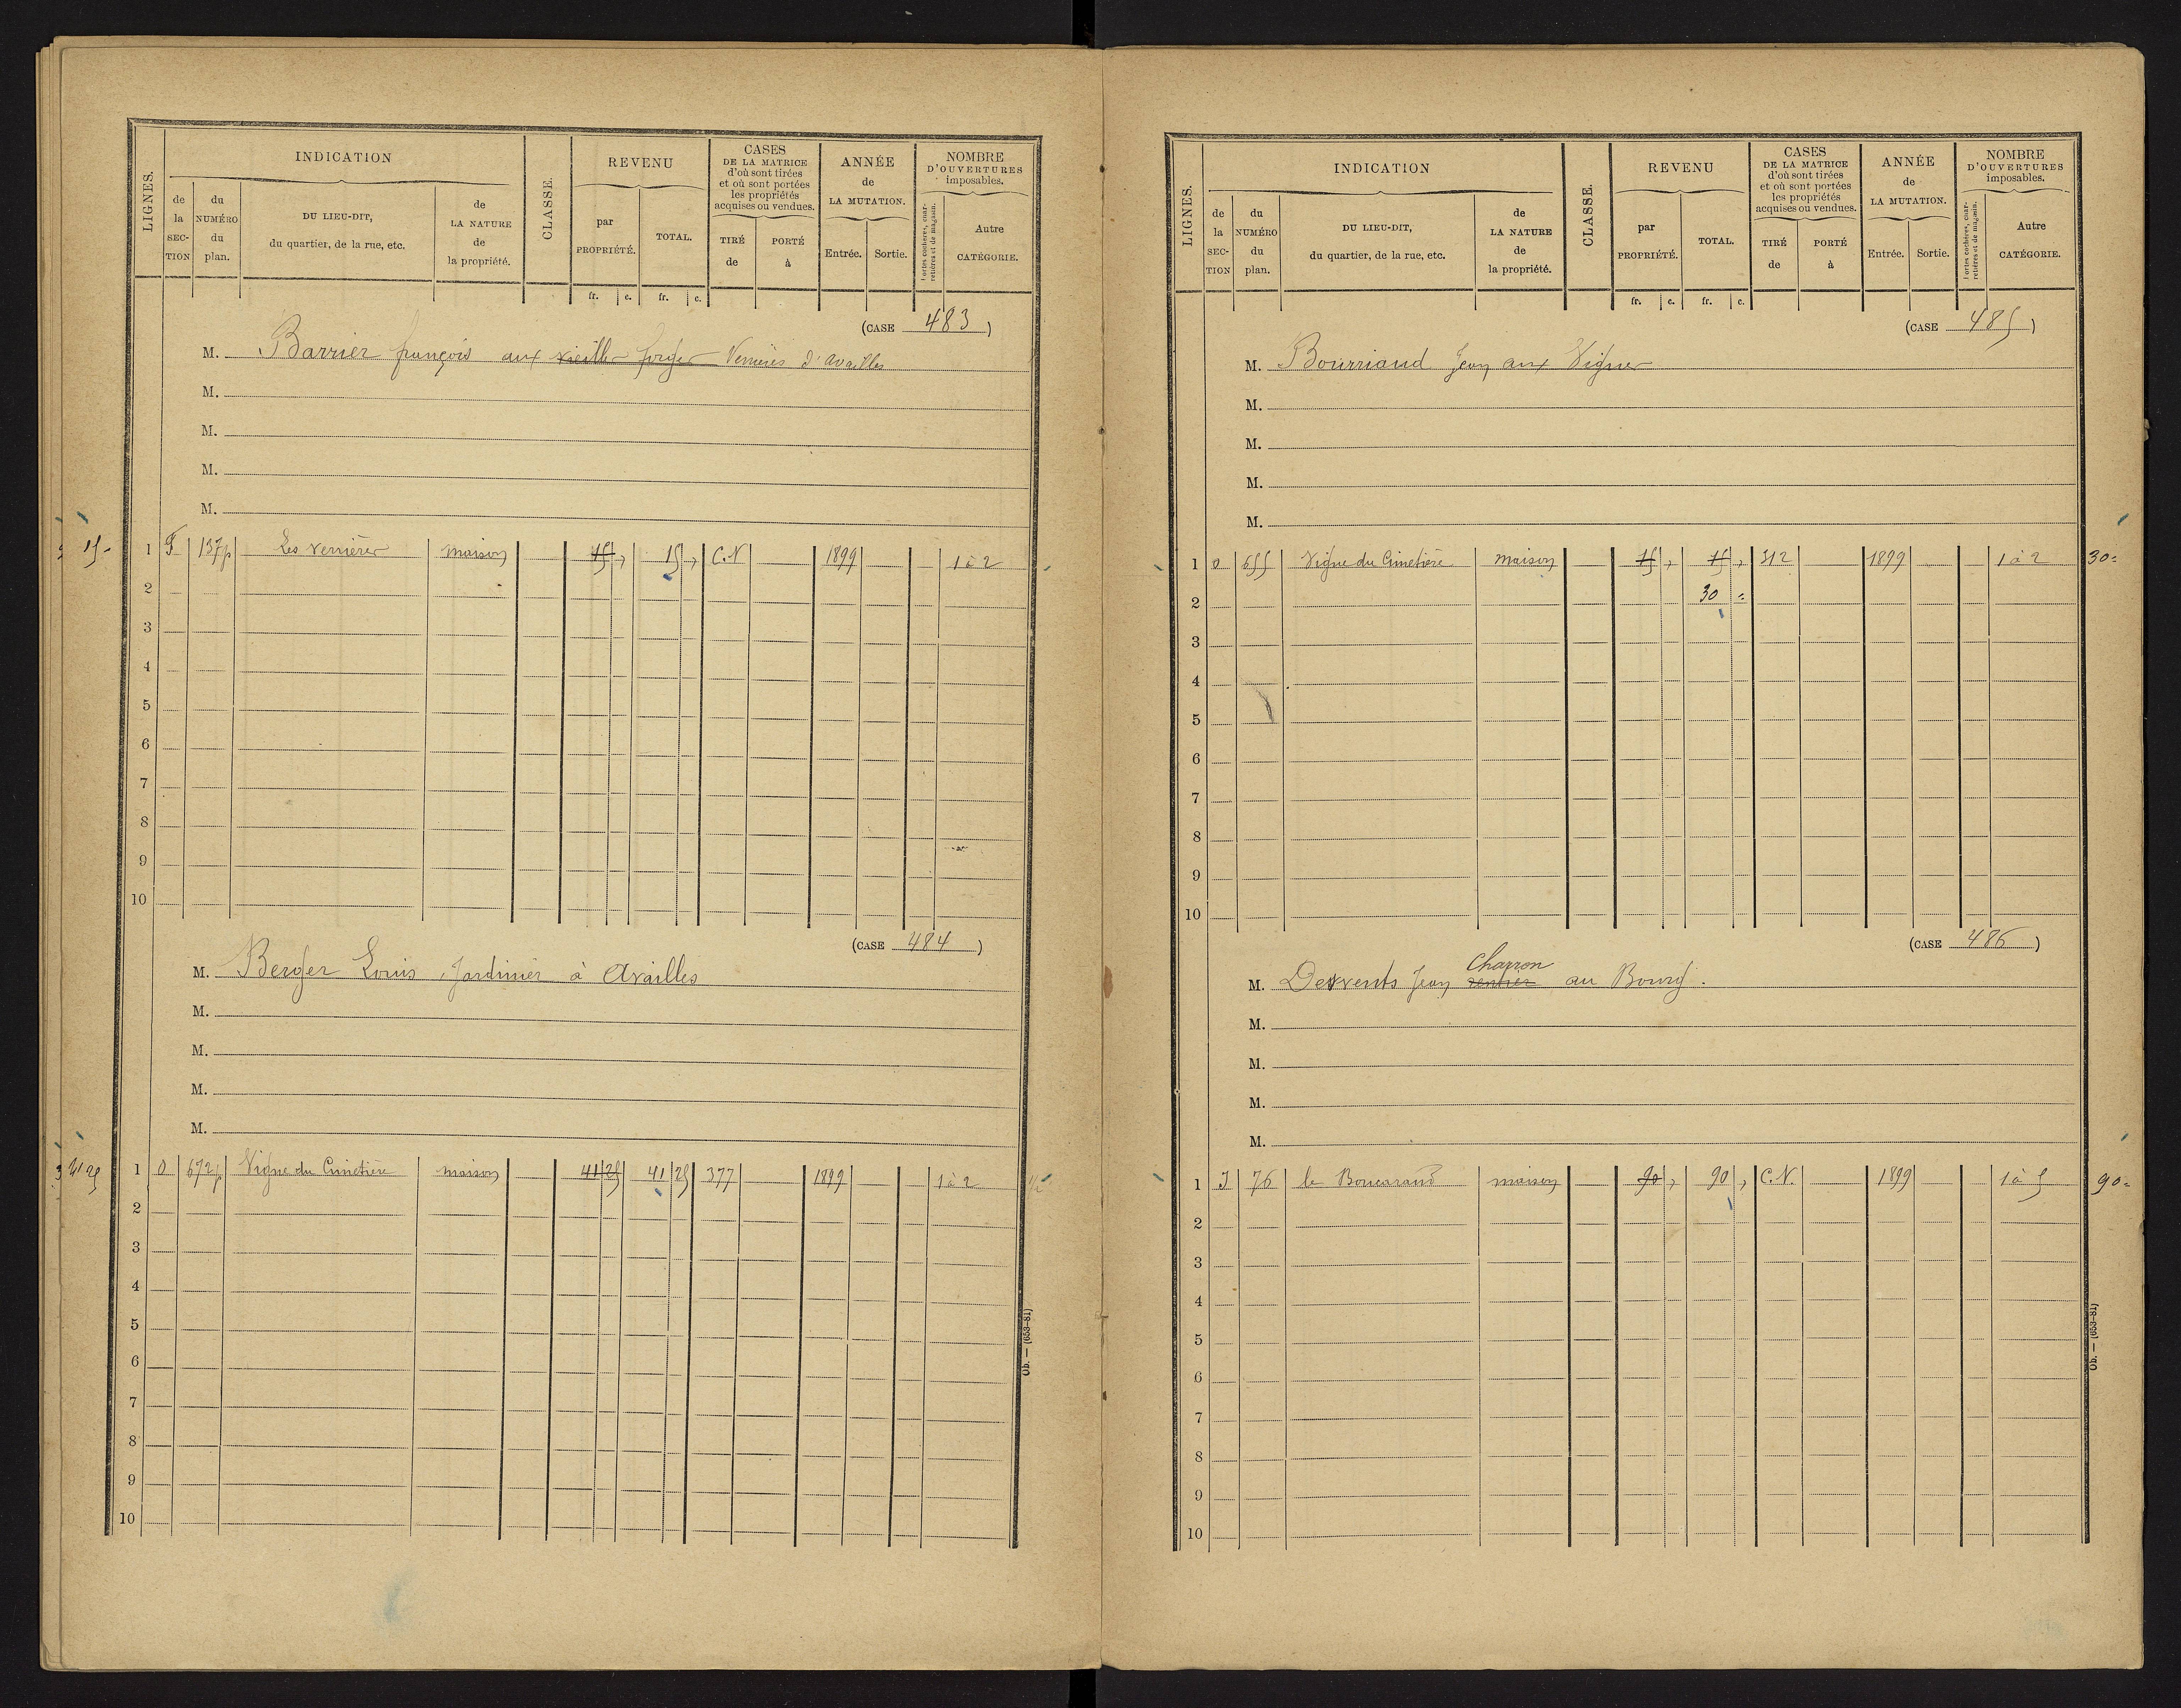 LIGNES. INDICATION CLASSE. REVENU CASES DE LA MATRICE d'où sont tirées et où sont portées les propriétés acquises ou vendues. ANNÉE de LA MUTATION. NOMBRE D'OUVERTURES imposables.
de la SECTION du NUMÉRO du plan. DU LIEU-DIT, du quartier, de la rue, etc. de LA NATURE de la propriété. par PROPRIÉTÉ. TOTAL. TIRÉ de PORTÉ à Entrée. Sortie. Portes cochères, charretières et de magasin. Autre CATÉGORIE.
fr. c. fr. c.
(CASE 483)
M. Barrier françois aux vieilles forges Verrières d'availles
M.
M.
M.
M.
15 - 1 F 137p Les verrières maison 15 , 15 , C.N 1899 1 à 2
2
3
4
5
6
7
8
9
10
(CASE 484)
M. Berger Louis, Jardinier à Availles
M.
M.
M.
M.
41 25 1 O 672p Vigne du Cimetière maison 41 25 41 25 377 1899 1 à 2
2
3
4
5
6
7
8
9
10
Ob. — (653-81)
LIGNES. INDICATION CLASSE. REVENU CASES DE LA MATRICE d'où sont tirées et où sont portées les propriétés acquises ou vendues. ANNÉE de LA MUTATION. NOMBRE D'OUVERTURES imposables.
de la SECTION du NUMÉRO du plan. DU LIEU-DIT, du quartier, de la rue, etc. de LA NATURE de la propriété. par PROPRIÉTÉ. TOTAL. TIRÉ de PORTÉ à Entrée. Sortie. Portes cochères, charretières et de magasin. Autre CATÉGORIE.
fr. c. fr. c.
(CASE 485)
M. Bourriaud Jean aux Vignes
M.
M.
M.
M.
1 O 655 Vigne du Cimetière maison 15 , 15 , 312 1899 1 à 2 30 =
2 30 =
3
4
5
6
7
8
9
10
(CASE 486)
Charron
M. Desvents Jean rentier au Bourg.
M.
M.
M.
M.
1 J 76 le Boucaraud maison 90 , 90 , C.N. 1899 1 à 5 90 =
2
3
4
5
6
7
8
9
10
Ob. — (653-81)